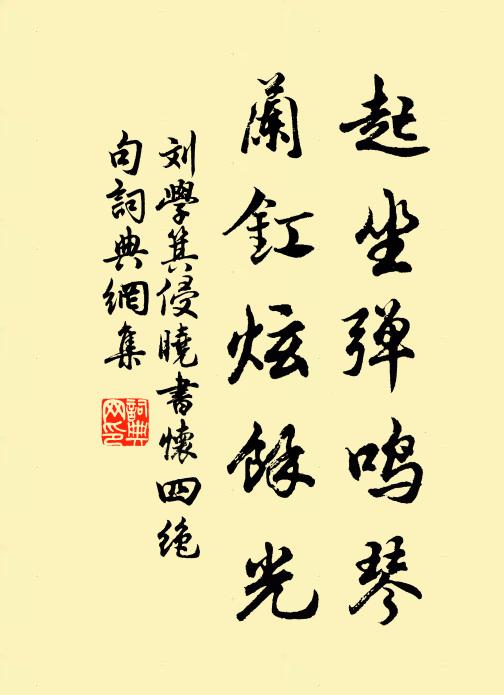 起坐弹鸣琴
蘭釭炫餘光
刘学箕侵曉書懷四绝
句詞典網集
詞典网印